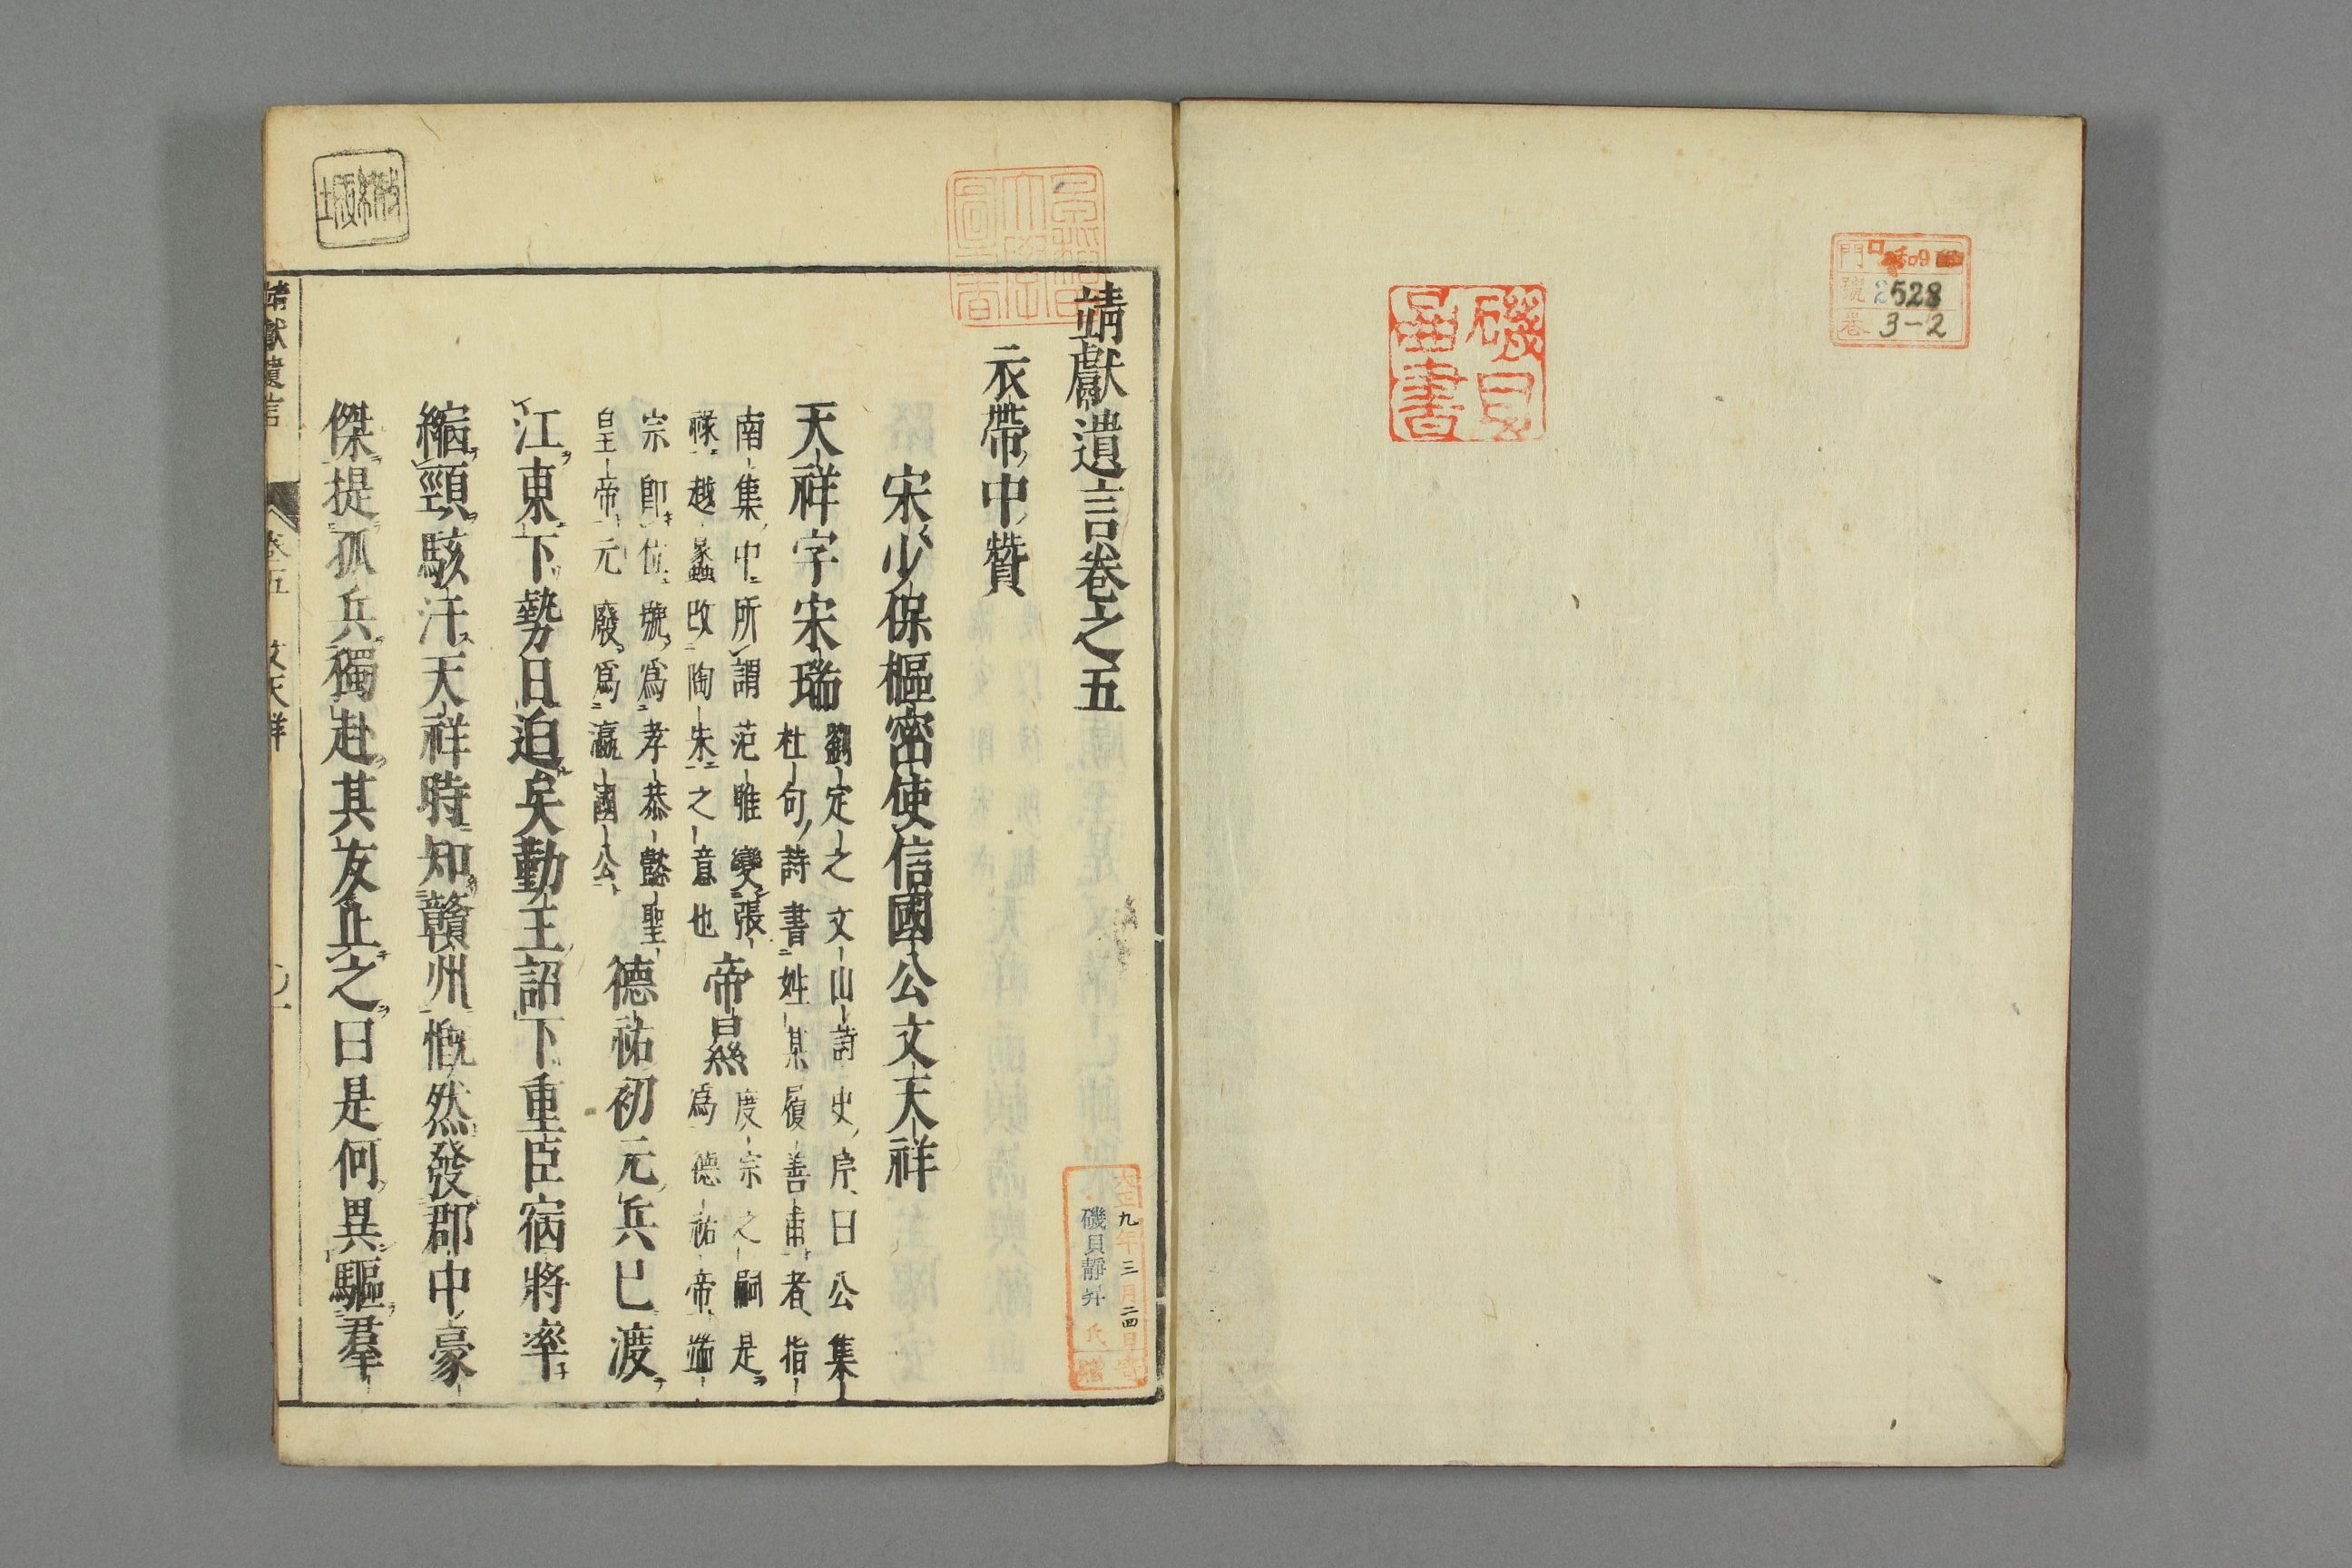 門 ロ 和9
號 2528
卷 3-2
磯貝
圖書
早稻田
大學
圖書
大正九年三月二四日寄
磯貝靜 氏贈
靖獻遺言卷之五
衣帶中贊
宋少保樞密使信國公文天祥
天祥字宋瑞
劉定之文山詩史序曰公集
杜句詩書姓某履善甫者指
南集中所謂范雎變張
祿越蠡改陶朱之意也
帝㬎
度宗之嗣是
爲德祐帝端
宗卽位號爲孝恭懿聖
皇帝元廢爲瀛國公
德祐初元兵已渡
江東下勢日迫矣勤王詔下重臣宿將率
縮頸駭汗天祥時知贛州慨然發郡中豪
傑提孤兵獨赴其友止之曰是何異驅羣
靖獻遺言 卷五 文天祥 〇一